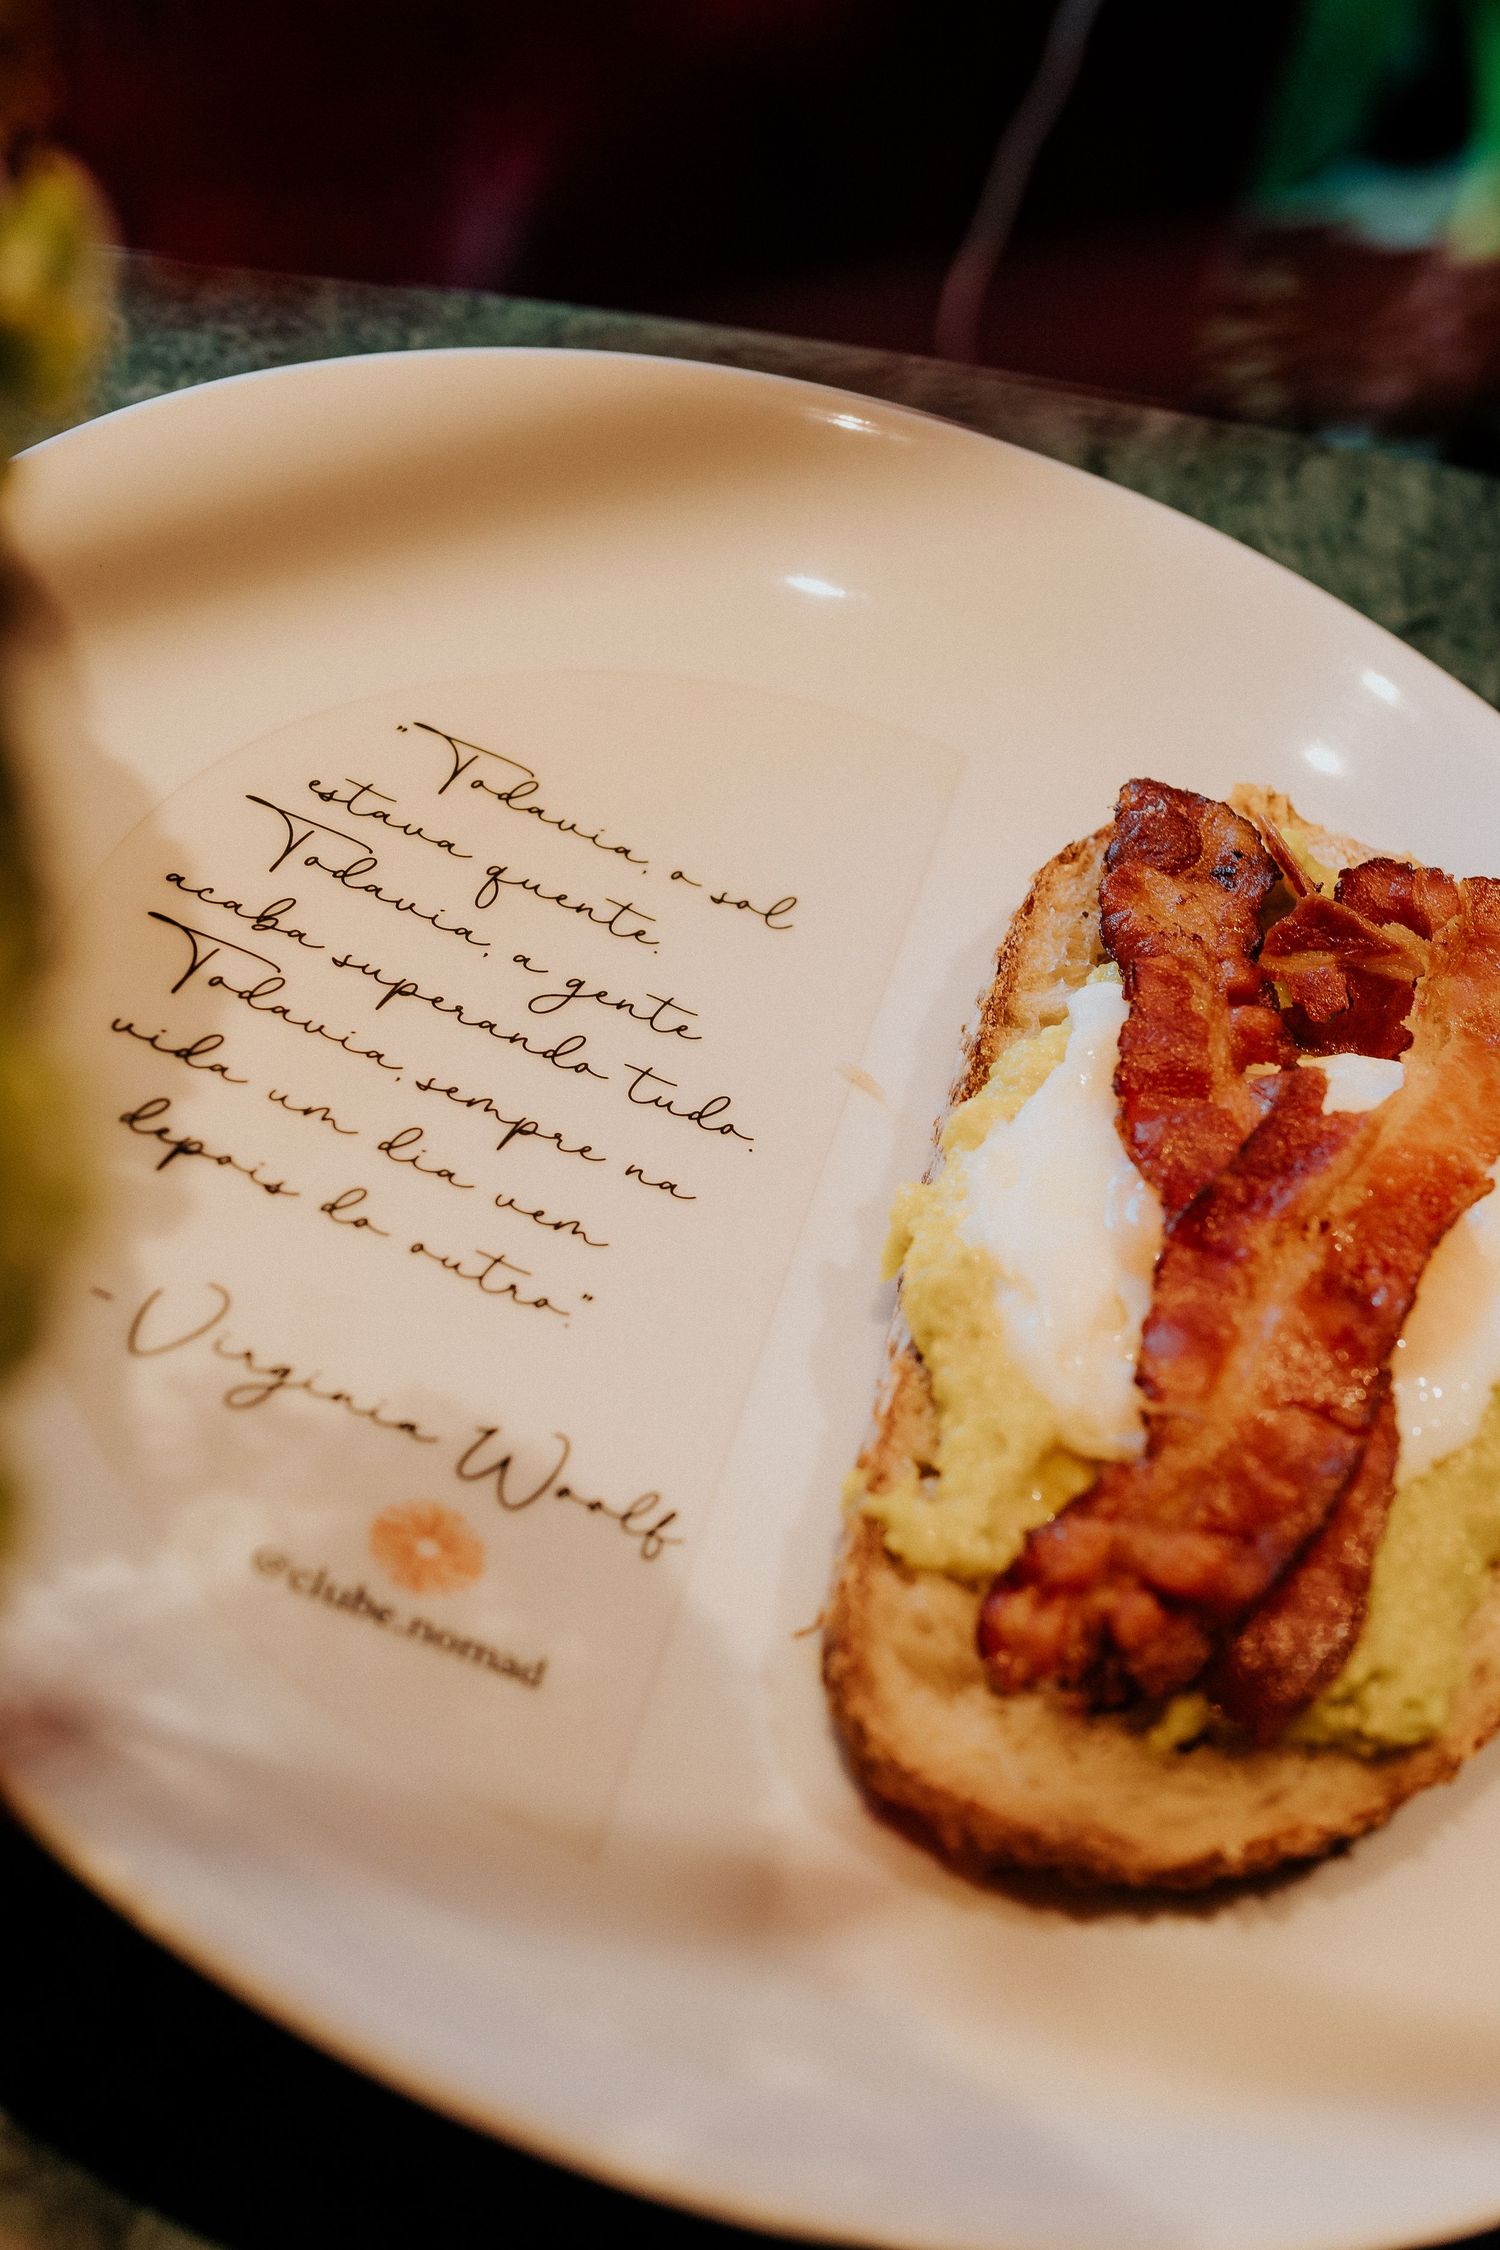 "Todavia, o sol
estava quente.
Todavia, a gente
acaba superando tudo.
Todavia, sempre na
vida um dia vem
depois do outro."
- Virginia Woolf
@clube.nomad